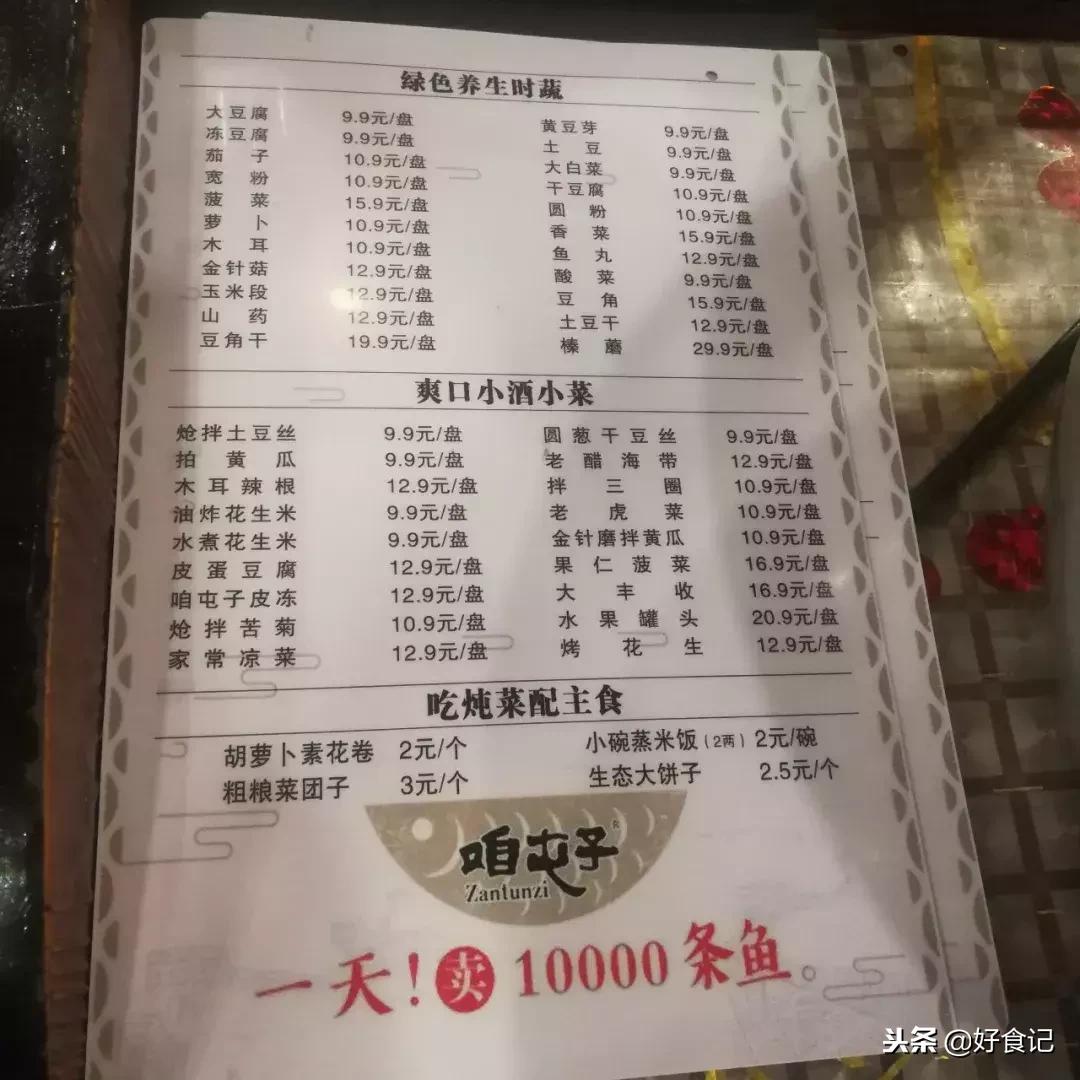 绿色养生时蔬
大豆腐 9.9元/盘 黄豆芽 9.9元/盘
冻豆腐 9.9元/盘 土豆 9.9元/盘
茄子 10.9元/盘 大白菜 9.9元/盘
宽粉 10.9元/盘 干豆腐 10.9元/盘
菠菜 15.9元/盘 圆粉 10.9元/盘
萝卜 10.9元/盘 香菜 15.9元/盘
木耳 10.9元/盘 鱼丸 12.9元/盘
金针菇 12.9元/盘 酸菜 9.9元/盘
玉米段 12.9元/盘 豆角 15.9元/盘
山药 12.9元/盘 土豆干 12.9元/盘
豆角干 19.9元/盘 榛蘑 29.9元/盘
爽口小酒小菜
炝拌土豆丝 9.9元/盘 圆葱干豆丝 9.9元/盘
拍黄瓜 9.9元/盘 老醋海带 12.9元/盘
木耳辣根 12.9元/盘 拌三圈 10.9元/盘
油炸花生米 9.9元/盘 老虎菜 10.9元/盘
水煮花生米 9.9元/盘 金针磨拌黄瓜 10.9元/盘
皮蛋豆腐 12.9元/盘 果仁菠菜 16.9元/盘
咱屯子皮冻 12.9元/盘 大丰收 16.9元/盘
炝拌苦菊 10.9元/盘 水果罐头 20.9元/盘
家常凉菜 12.9元/盘 烤花生 12.9元/盘
吃炖菜配主食
胡萝卜素花卷 2元/个 小碗蒸米饭(2两) 2元/碗
粗粮菜团子 3元/个 生态大饼子 2.5元/个
咱屯子®
Zantunzi
一天!卖10000条鱼。
头条@好食记